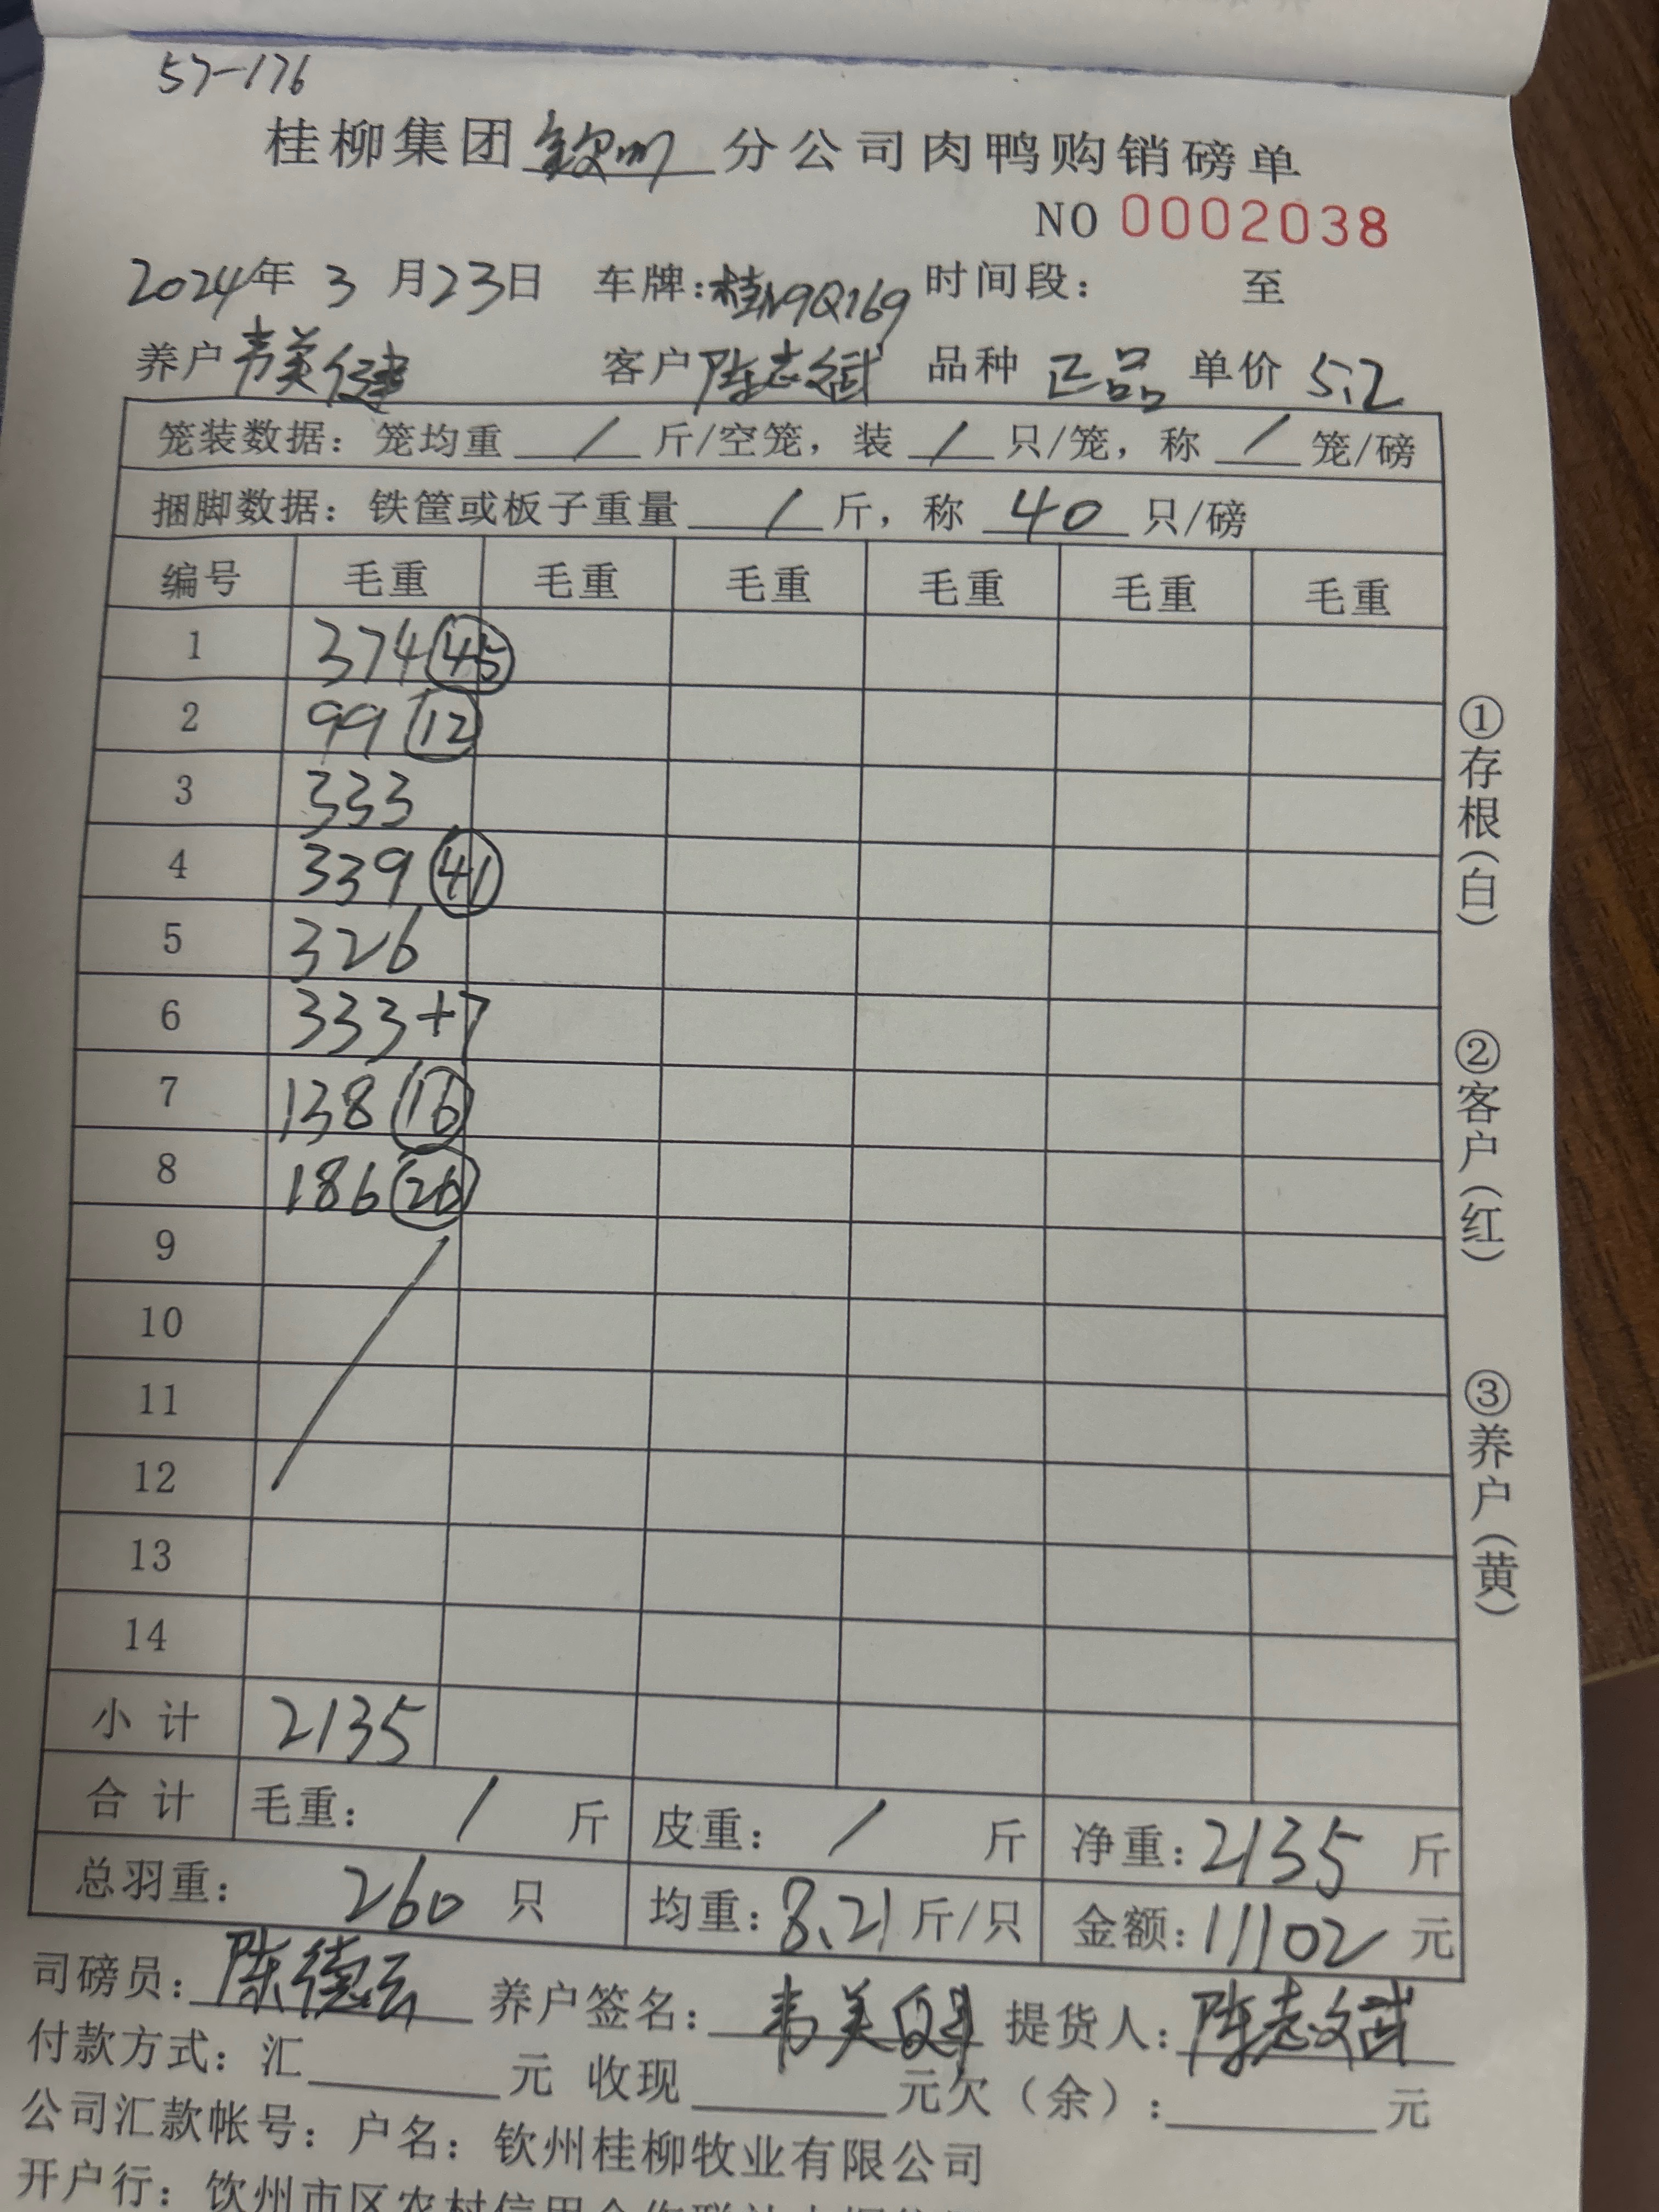 57-176
桂柳集团钦州分公司肉鸭购销磅单
NO 0002038
2024年 3 月23日 车牌:桂N9Q169 时间段: 至
养户韦美健 客户陈志斌 品种 正品 单价 5.2
笼装数据: 笼均重 / 斤/空笼, 装 / 只/笼, 称 / 笼/磅
捆脚数据: 铁筐或板子重量 / 斤, 称 40 只/磅
编号 毛重 毛重 毛重 毛重 毛重 毛重
1 374 45
2 99 12
3 333
4 339 41
5 326
6 333+7
7 138 16
8 186 26
9
10
11
12
13
14
小计 2135
合计 毛重: / 斤 皮重: / 斤 净重: 2135 斤
总羽重: 260 只 均重: 8.21 斤/只 金额: 11102 元
司磅员: 陈德云 养户签名: 韦美健 提货人: 陈志斌
付款方式: 汇 元 收现 元欠(余): 元
公司汇款帐号: 户名: 钦州桂柳牧业有限公司
开户行: 钦州市区农村信用合作联社
①存根(白)
②客户(红)
③养户(黄)